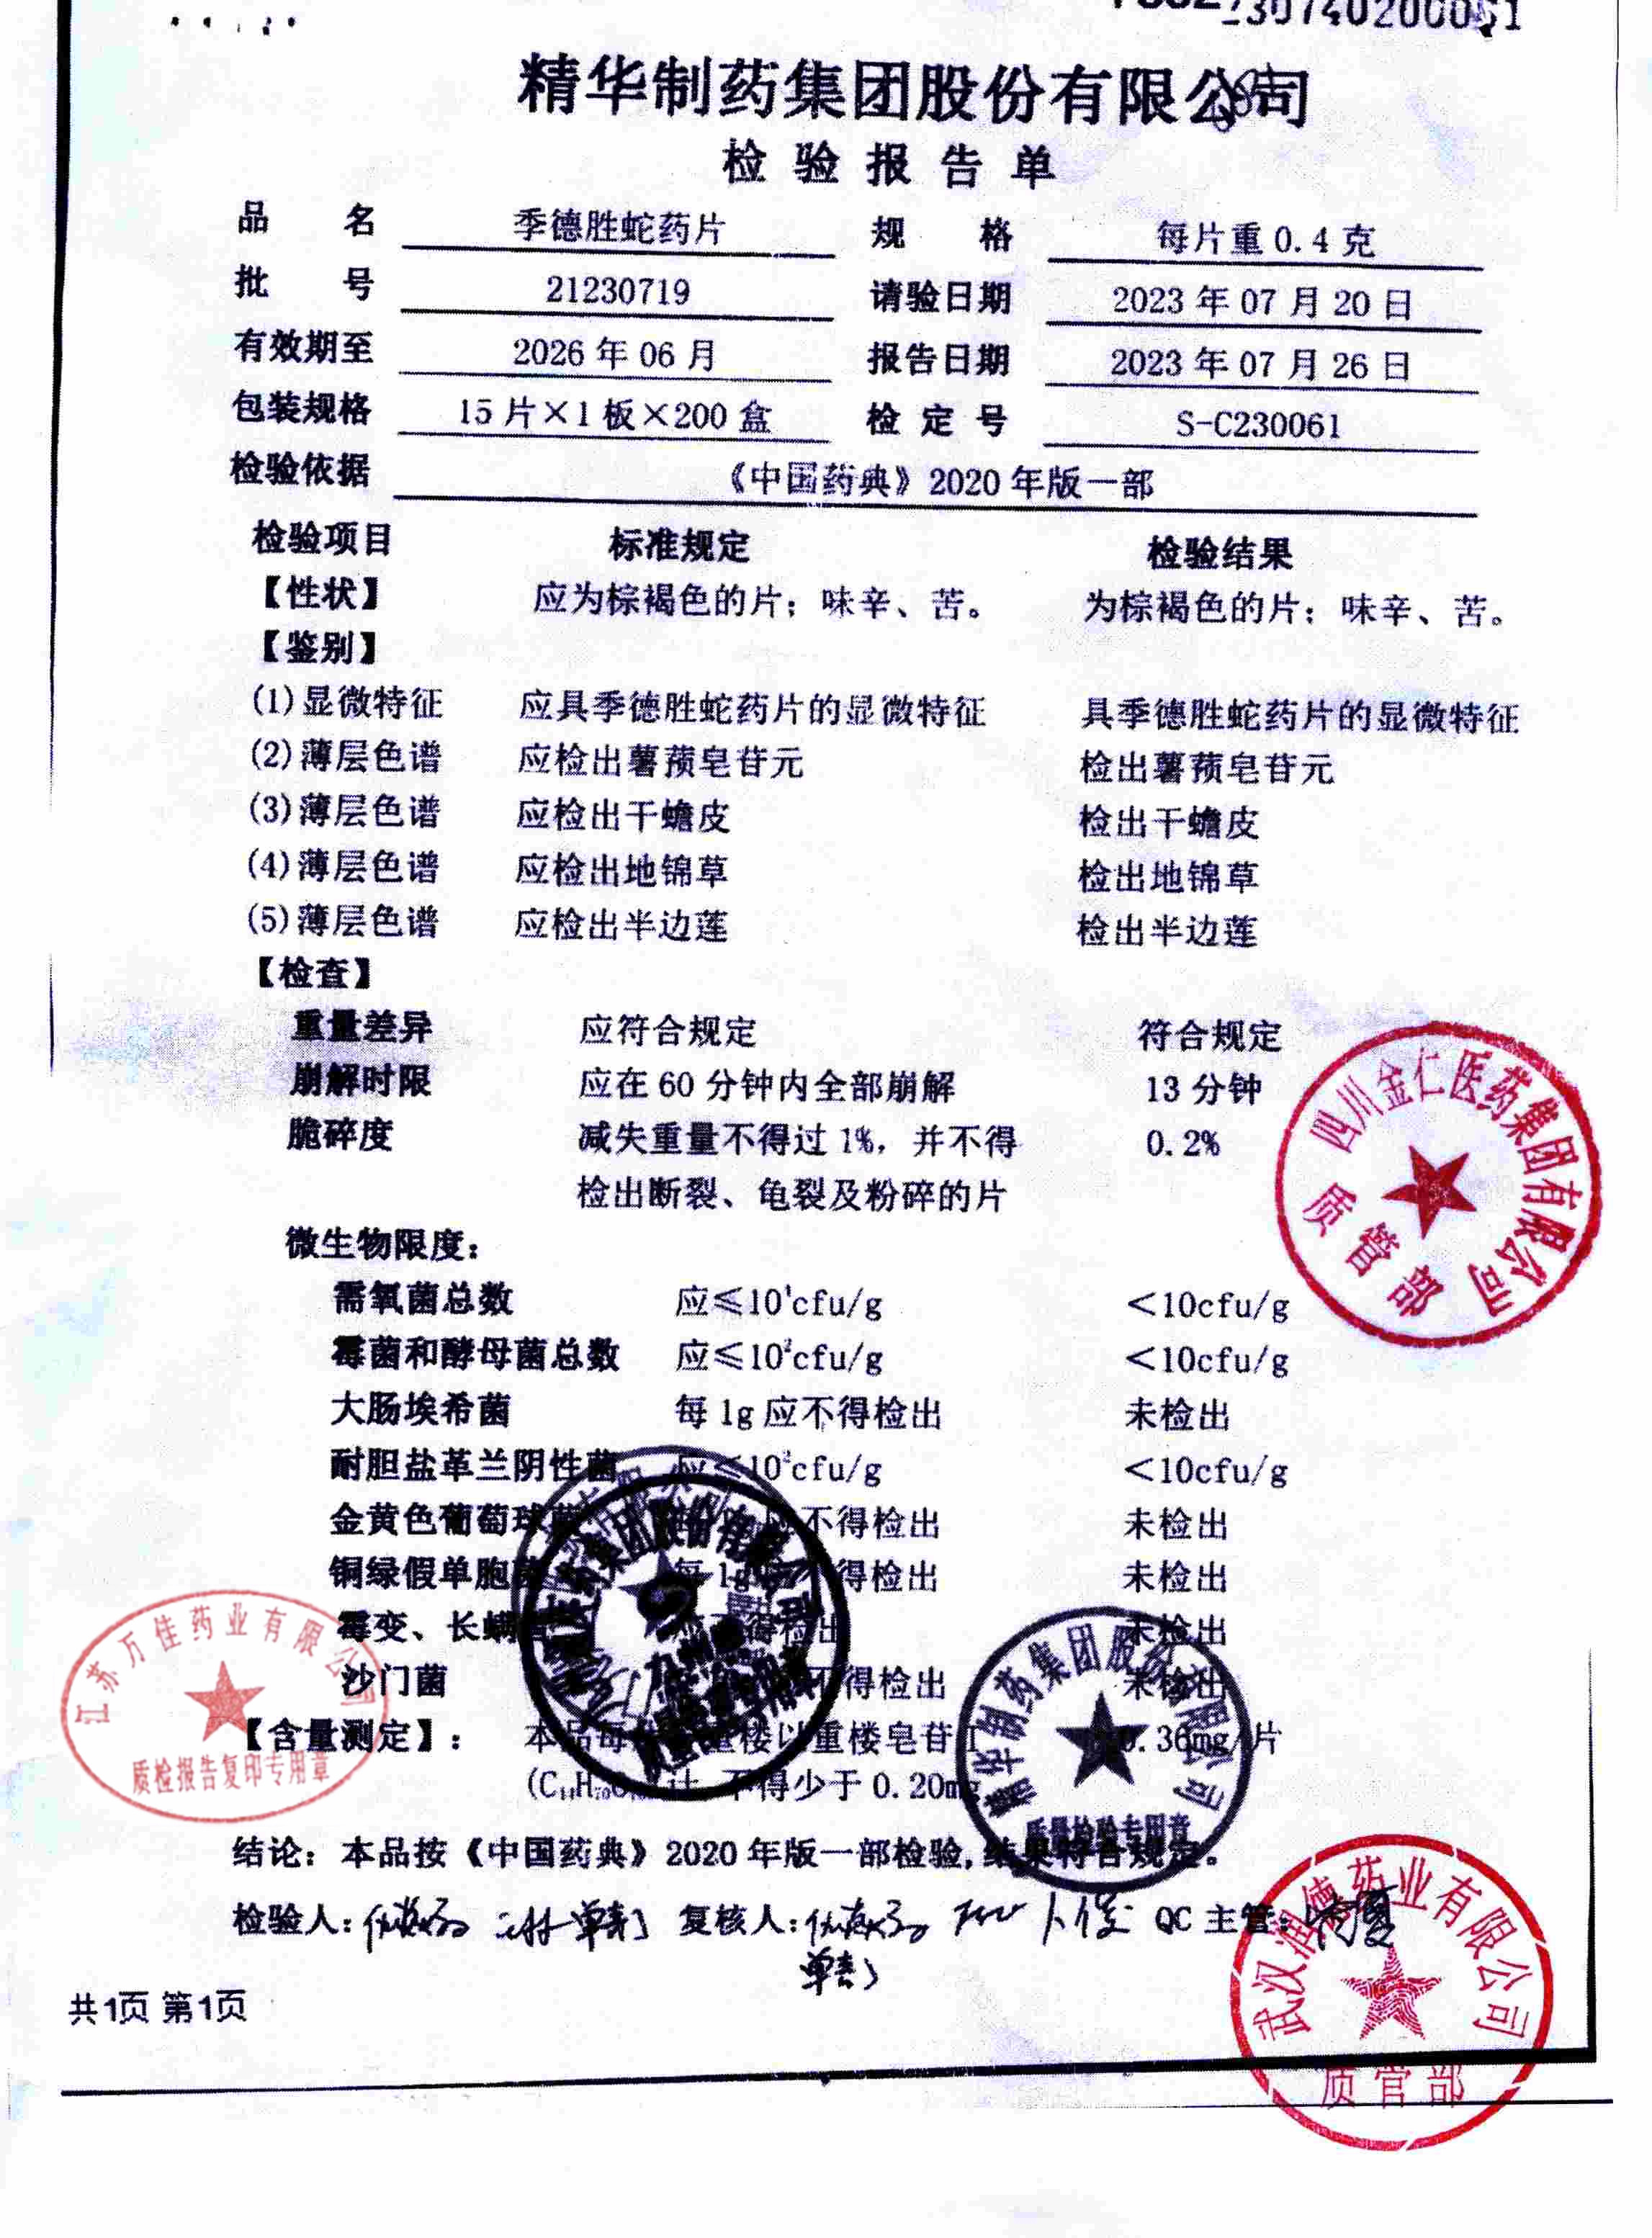 30740200051
精华制药集团股份有限公司
检验报告单
品 名 季德胜蛇药片 规 格 每片重0.4克
批 号 21230719 请验日期 2023年07月20日
有效期至 2026年06月 报告日期 2023年07月26日
包装规格 15片×1板×200盒 检定号 S-C230061
检验依据 《中国药典》2020年版一部
检验项目 标准规定 检验结果
【性状】 应为棕褐色的片；味辛、苦。 为棕褐色的片；味辛、苦。
【鉴别】
(1)显微特征 应具季德胜蛇药片的显微特征 具季德胜蛇药片的显微特征
(2)薄层色谱 应检出薯蓣皂苷元 检出薯蓣皂苷元
(3)薄层色谱 应检出干蟾皮 检出干蟾皮
(4)薄层色谱 应检出地锦草 检出地锦草
(5)薄层色谱 应检出半边莲 检出半边莲
【检查】
重量差异 应符合规定 符合规定
崩解时限 应在60分钟内全部崩解 13分钟
脆碎度 减失重量不得过1%，并不得 0.2%
检出断裂、龟裂及粉碎的片
微生物限度：
需氧菌总数 应≤10⁴cfu/g <10cfu/g
霉菌和酵母菌总数 应≤10²cfu/g <10cfu/g
大肠埃希菌 每1g应不得检出 未检出
耐胆盐革兰阴性菌 应≤10²cfu/g <10cfu/g
金黄色葡萄球菌 不得检出 未检出
铜绿假单胞菌 每1g 得检出 未检出
霉变、长螨 得检出 未检出
沙门菌 不得检出 未检出
【含量测定】： 本品每 重楼以重楼皂苷I 0.36mg/片
计，不得少于0.20mg
结论：本品按《中国药典》2020年版一部检验,结果符合规定。
检验人: 复核人: QC主管:
共1页 第1页
四川金仁医药集团有限公司
质管部
江苏万佳药业有限公司
质检报告复印专用章
精华制药集团股份有限公司
质量检验专用章
武汉润德药业有限公司
质管部